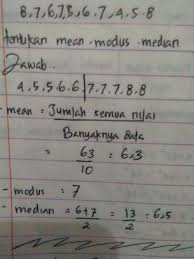 8,7,6,7,5,6,7,4,5,8
tentukan mean, modus, median
Jawab.
4,5,5,6,6|7,7,7,8,8
- mean = Jumlah semua nilai
Banyaknya Data
= 63 = 6,3
10
- modus = 7
- median = 6+7 = 13 = 6,5
2 2